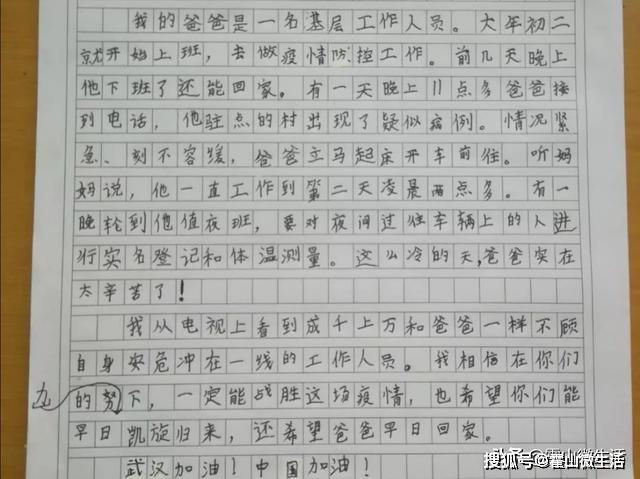 我的爸爸是一名基层工作人员。大年初二
就开始上班，去做疫情防控工作。前几天晚上
他下班了还能回家。有一天晚上11点多爸爸接
到电话，他驻点的村出现了疑似病例。情况紧
急、刻不容缓，爸爸立马起床开车前往。听妈
妈说，他一直工作到第二天凌晨两点多。有一
晚轮到他值夜班，要对夜间过往车辆上的人进
行实名登记和体温测量。这么冷的天,爸爸实在
太辛苦了！
我从电视上看到成千上万和爸爸一样不顾
自身安危冲在一线的工作人员。我相信在你们
力
的努下，一定能战胜这场疫情，也希望你们能
早日凯旋归来，还希望爸爸早日回家。
武汉加油！中国加油！
搜狐号@霍山微生活